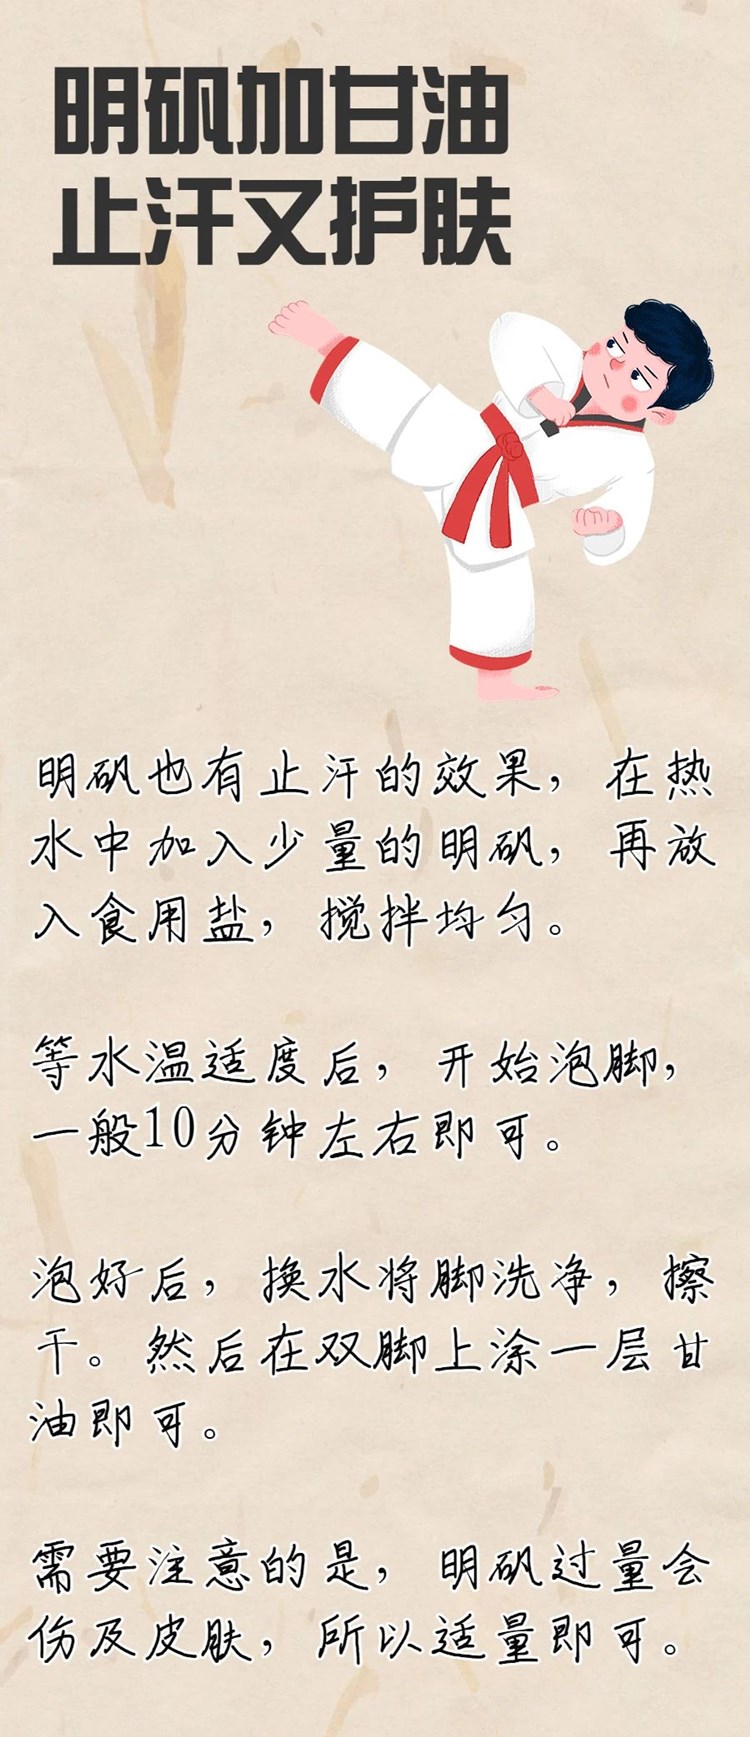 明矾加甘油
止汗又护肤
明矾也有止汗的效果，在热
水中加入少量的明矾，再放
入食用盐，搅拌均匀。
等水温适度后，开始泡脚，
一般10分钟左右即可。
泡好后，换水将脚洗净，擦
干。然后在双脚上涂一层甘
油即可。
需要注意的是，明矾过量会
伤及皮肤，所以适量即可。